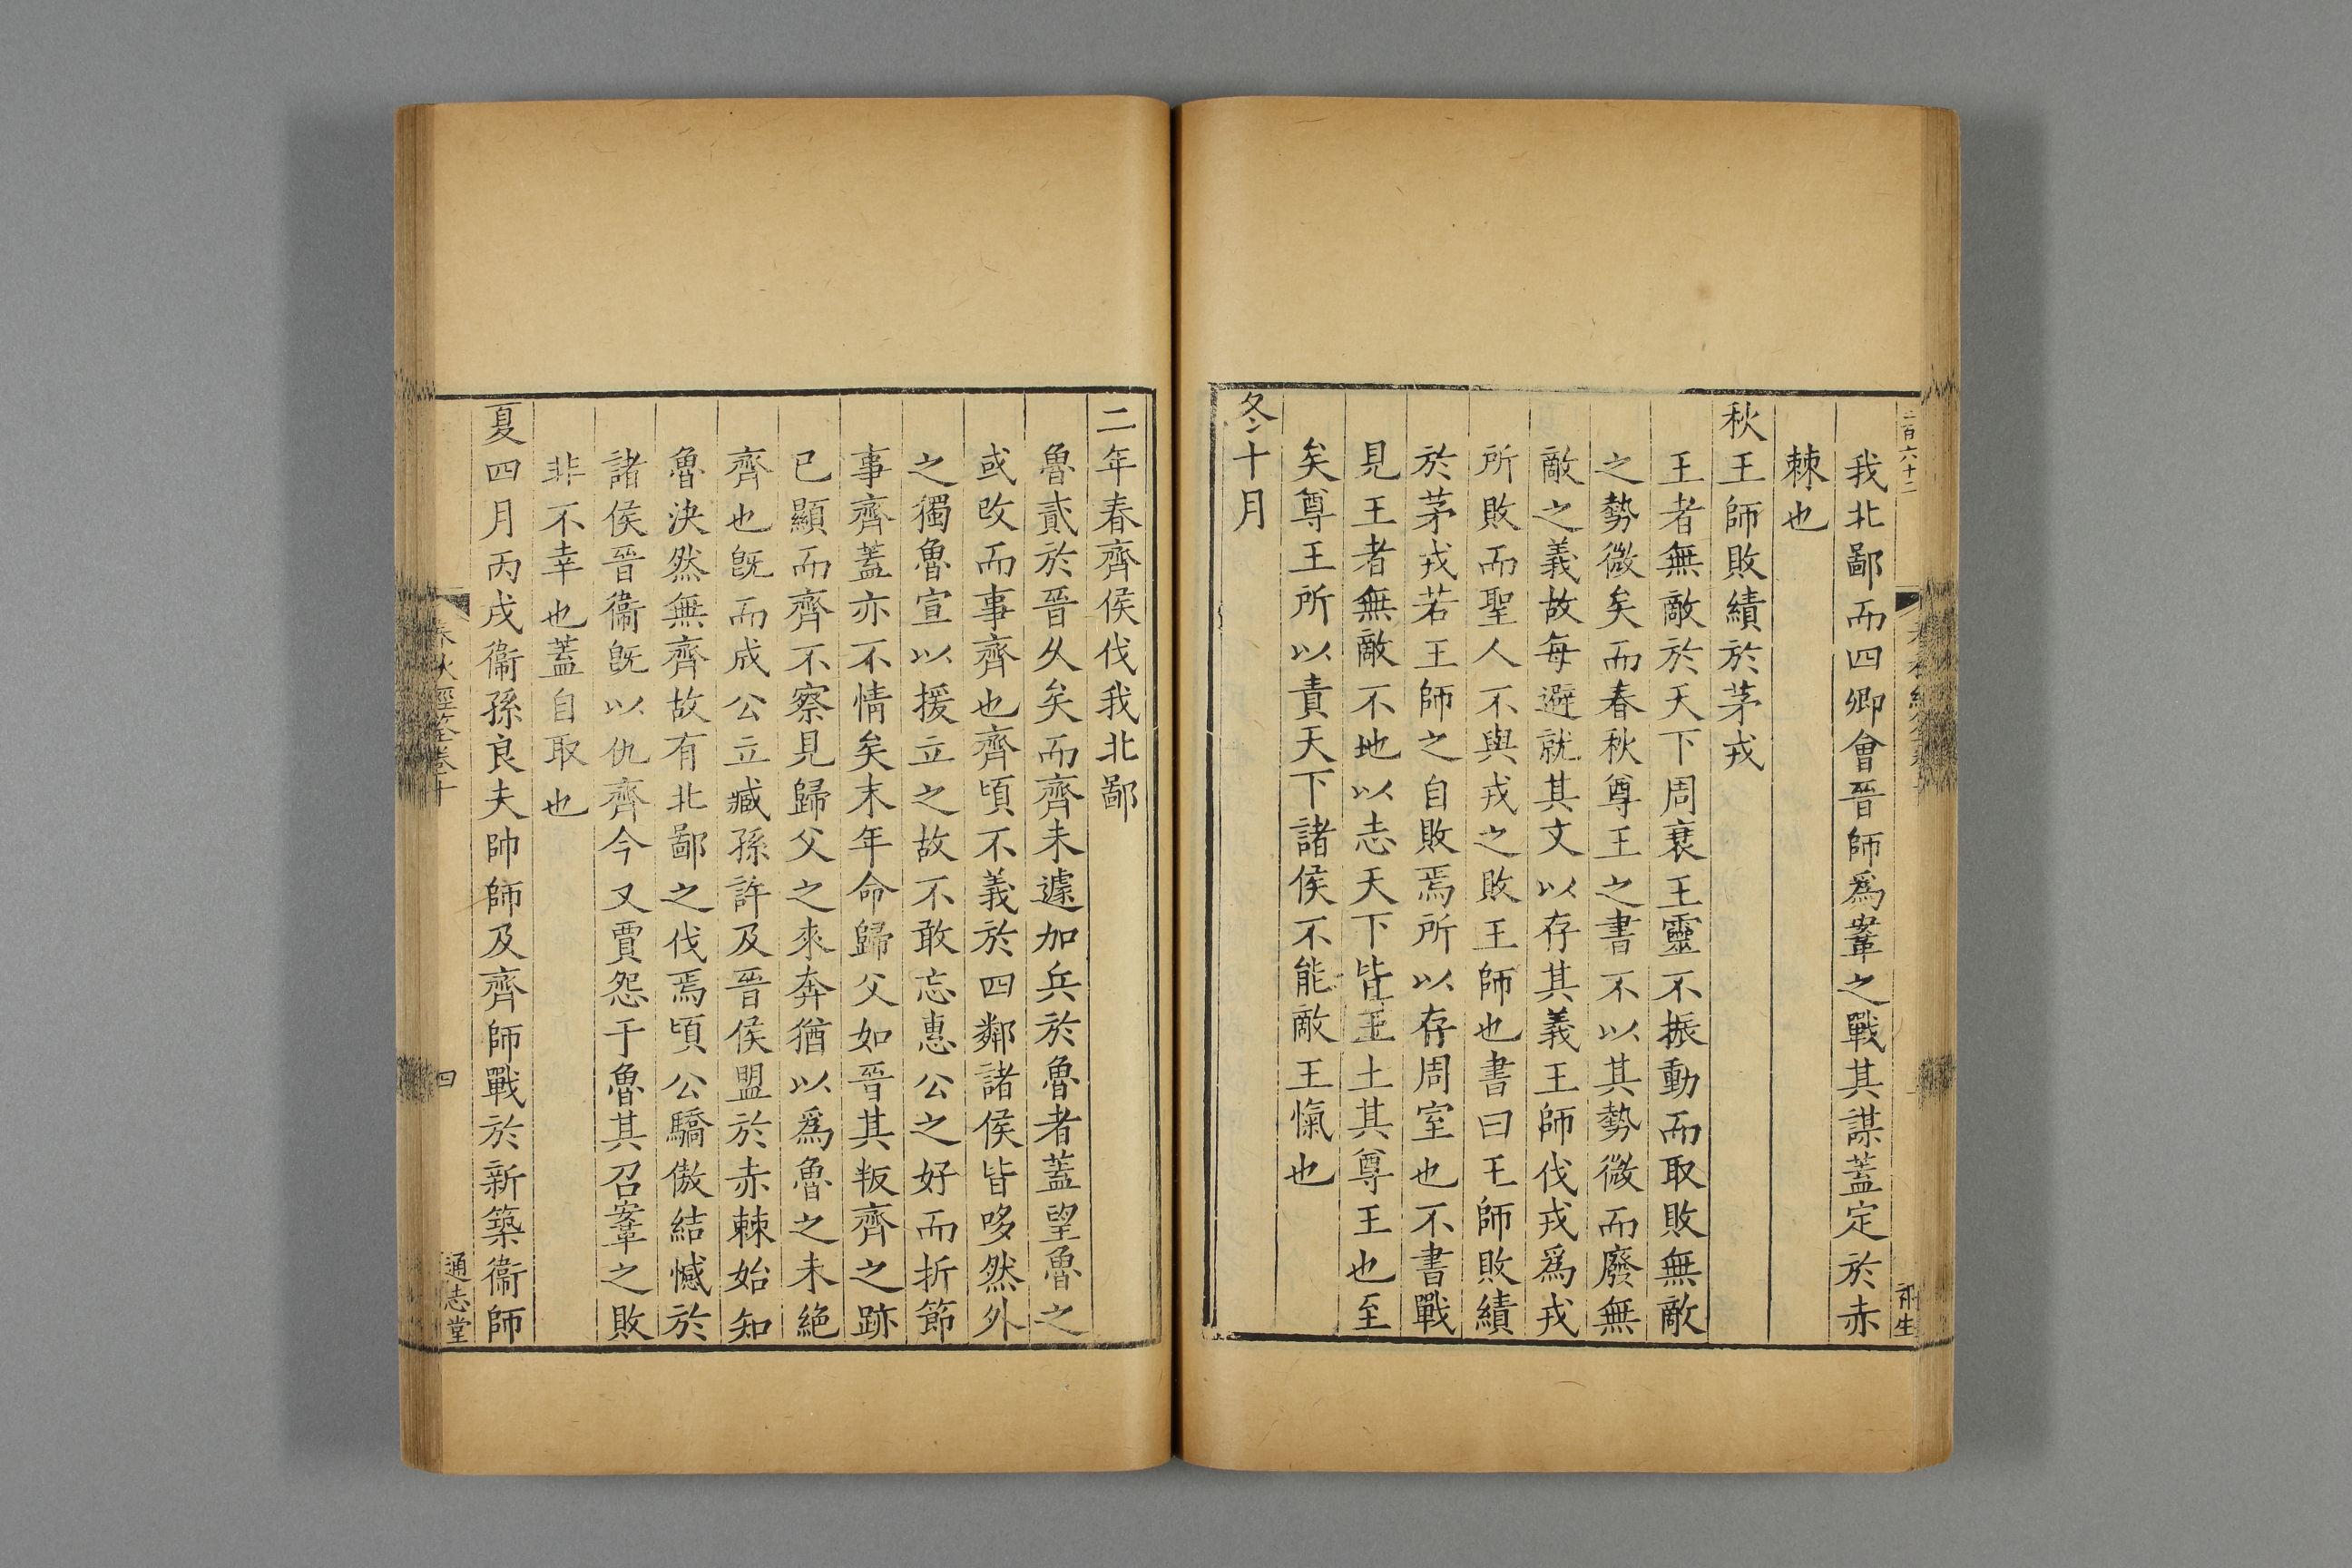 二百六十二
我北鄙而四卿會晉師爲鞌之戰其謀蓋定於赤
棘也
秋王師敗績於茅戎
王者無敵於天下周衰王靈不振動而取敗無敵
之勢微矣而春秋尊王之書不以其勢微而廢無
敵之義故每避就其文以存其義王師伐戎爲戎
所敗而聖人不與戎之敗王師也書曰王師敗績
於茅戎若王師之自敗焉所以存周室也不書戰
見王者無敵不地以志天下皆王土其尊王也至
矣尊王所以責天下諸侯不能敵王愾也
冬十月
二年春齊侯伐我北鄙
魯貳於晉久矣而齊未遽加兵於魯者蓋望魯之
或改而事齊也齊頃不義於四鄰諸侯皆哆然外
之獨魯宣以援立之故不敢忘惠公之好而折節
事齊蓋亦不情矣末年命歸父如晉其叛齊之跡
已顯而齊不察見歸父之來奔猶以爲魯之未絕
齊也旣而成公立臧孫許及晉侯盟於赤棘始知
魯決然無齊故有北鄙之伐焉頃公驕傲結憾於
諸侯晉衞旣以仇齊今又賈怨于魯其召鞌之敗
非不幸也蓋自取也
夏四月丙戌衞孫良夫帥師及齊師戰於新築衞師
春秋經筌卷十
四
通志堂